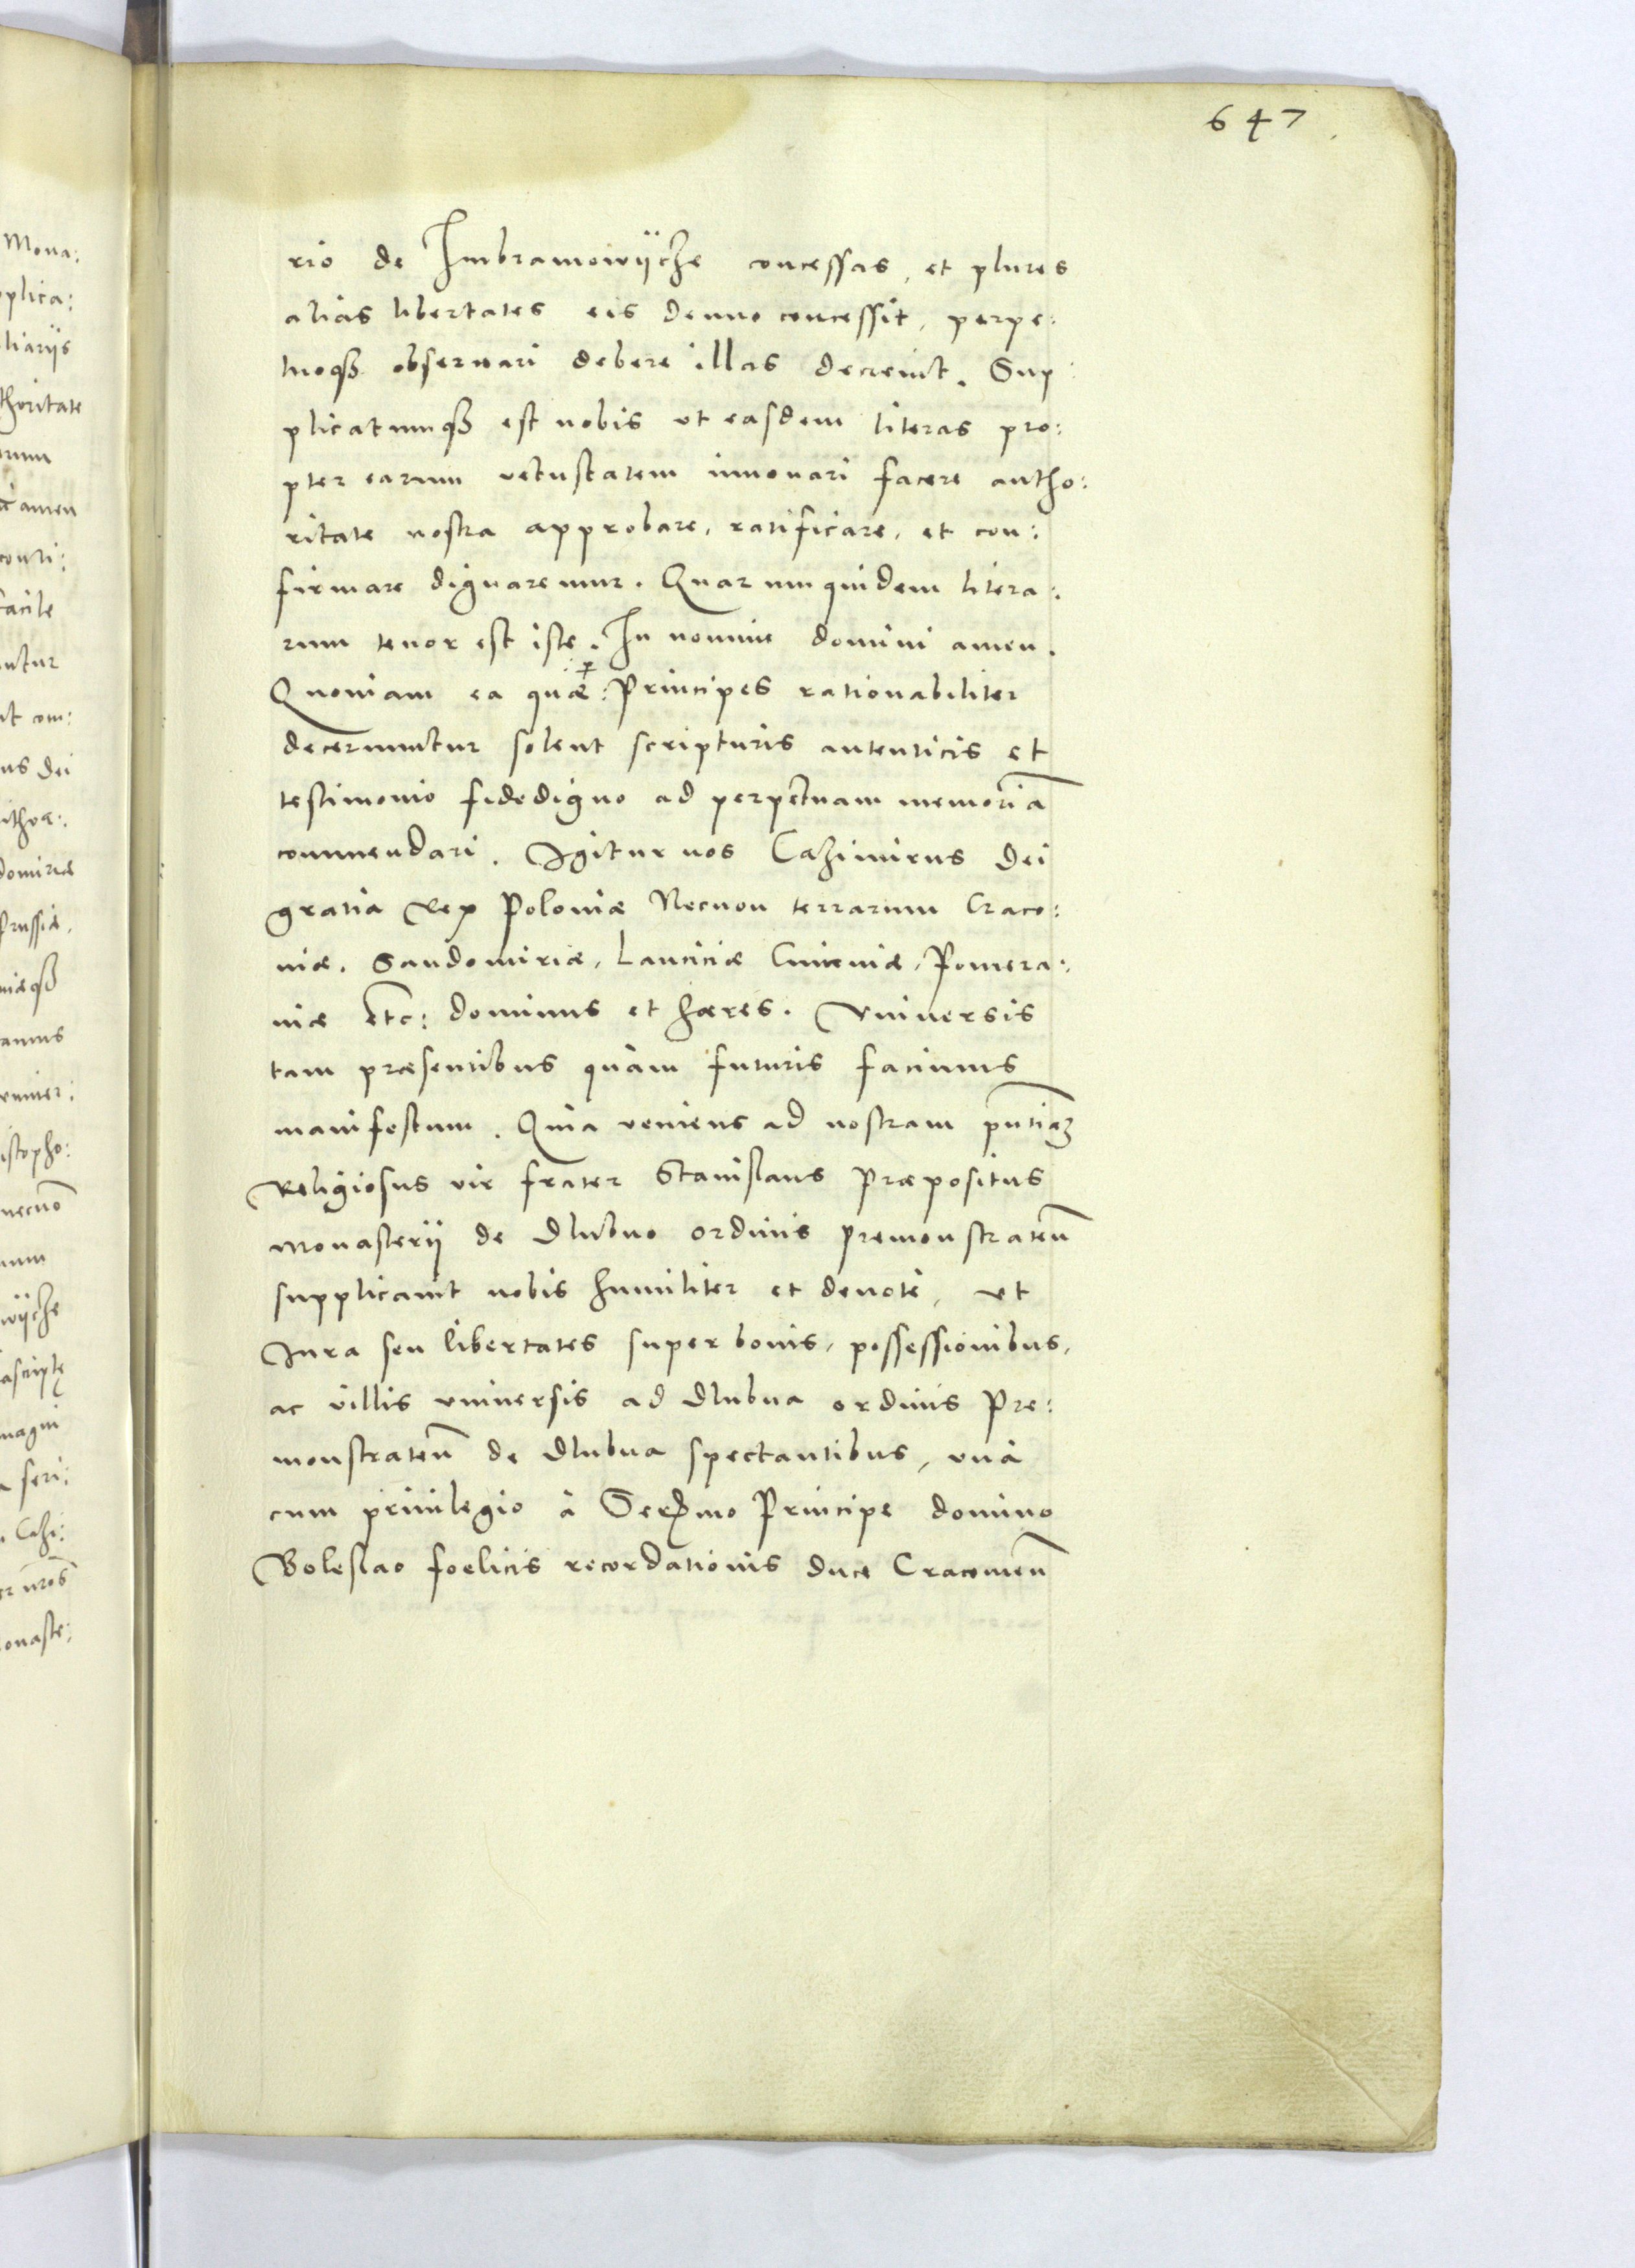 647
rio de Imbramowijche concessas, et plures
alias libertates eis denuo concessit, perpe:
tuoqȝ obseruari debere illas decreuit. Sup:
plicatumqȝ est nobis vt easdem literas pro:
pter earum vetustatem innouari facere autho:
ritate nostra approbare, ratificare, et con:
firmare dignaremur. Quarum quidem litera:
rum tenor est iste. In nomine domini amen.
Quoniam ea quæ: Principes rationabiliter
decernuntur solent scripturis autenticis et
testimonio fidedigno ad perpetuam memoriā
commendari. Igitur nos Cazimirus Dei
gratia Rex Poloniæ Necnon terrarum Craco:
uiæ. Sandomiriæ, Lanciciæ Cuiauiæ, Pomera:
niæ etc: dominus et hæres. Vniuersis
tam præsentibus quàm futuris facimus
manifestum. Quia veniens ad nostram pn̄tiaȝ
Religiosus vir frater Stanislaus Præpositus
Monasterij de Dlubno ordinis Premonstrateñ
supplicauit nobis humiliter et deuotè, vt
Iura seu libertates super bonis, possessionibus,
ac villis vniuersis ad Dlubna ordinis Pre:
monstrateñ de Dlubna spectantibus, vnà
cum priuilegio à Sermo Principe domino
Boleslao foelicis recordationis duce Cracouieñ
Mona:
plica:
liarijs
thoritate
tamen
conti:
facile
ntur
com:
us dei
domiriæ
Prussiæ.
niæqȝ
vniuer:
istopho:
necnō
wijche
magni
seri:
Cazi:
nrōs
onaste: